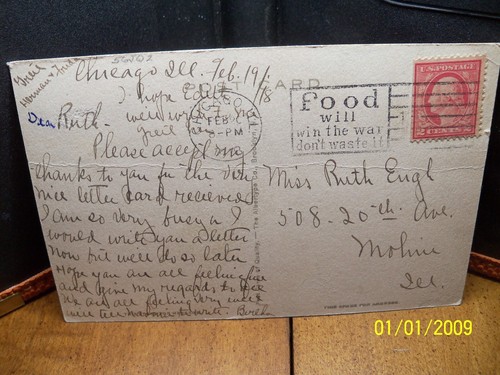 Chicago Ill. Feb. 19/18
I hope Edith
Dear Ruth.
Please accept my
thanks to you for the very
nice letter card recieved
I am so very busy or I
would write you a letter
now but will do so later
Hope you are all feeling fine
and give my regards to
We are all feeling very well
CARD
CHICAGO
FEB
PM
food
will
win the war
don't waste it
U.S. POSTAGE
2 CENTS 2
Miss Ruth Engh
508-20th Ave.
Moline
Ill.
THIS SPACE FOR ADDRESS
01/01/2009